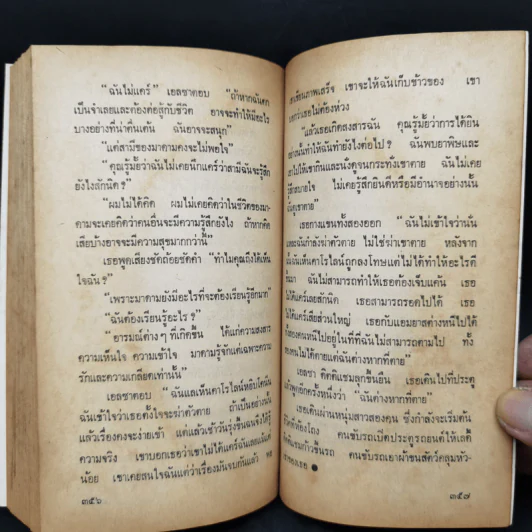 “ฉันไม่แคร์” เอลซาตอบ “ถ้าหากฉันตก
เป็นจำเลยและต้องต่อสู้กับชีวิต อาจจะทำให้มีอะไร
บางอย่างที่น่าตื่นเต้น ฉันอาจจะสนุก”
“แต่สามีของมาดามคงจะไม่พอใจ”
“คุณรู้มั้ยว่าฉันไม่เคยนึกแคร์ว่าสามีฉันจะรู้สึก
ยังไงสักนิด?”
“ผมไม่ได้คิด ผมไม่เคยคิดว่าในชีวิตของมา-
ดามจะเคยคิดว่าคนอื่นจะมีความรู้สึกยังไง ถ้าหากคิด
เสียบ้างอาจจะมีความสุขมากกว่านี้”
เธอพูดเสียงชัดถ้อยชัดคำ “ทำไมคุณถึงได้เห็น
ใจฉัน?”
“เพราะมาดามยังมีอะไรที่จะต้องเรียนรู้อีกมาก”
“ฉันต้องเรียนรู้อะไร?”
“อารมณ์ต่างๆ ที่เกิดขึ้น ได้แก่ความสงสาร
ความเห็นใจ ความเข้าใจ มาดามรู้จักแต่เฉพาะความ
รักและความเกลียดเท่านั้น”
เอลซาตอบ “ฉันแลเห็นคาโรไลน์หยิบ
ฉันเข้าใจว่าเธอตั้งใจจะฆ่าตัวตาย ถ้าเป็นอย่างนั้น
แล้วเรื่องคงจะง่ายเข้า แต่แล้วเช้าวันรุ่งขึ้นฉันจึงได้รู้
ความจริง เขาบอกเธอว่าเขาไม่ได้แคร์ฉันเลยแม้แต่
น้อย เขาเคยสนใจฉันแต่ว่าเรื่องมันจบกันแล้ว พอ
๓๕๖
เขาเขียนภาพเสร็จ เขาจะให้ฉันเก็บข้าวของ เขา
บอกว่าเธอไม่ต้องห่วง
“แล้วเธอเกิดสงสารฉัน คุณรู้มั้ยว่าการได้ยิน
อย่างนั้นทำให้ฉันทำยังไงต่อไป? ฉันพบยาพิษและ
เอาไปให้เขากินและนั่งดูจนกระทั่งเขาตาย ฉันไม่เคย
รู้สึกสบายใจ ไม่เคยรู้สึกยินดีหรือมีอำนาจอย่างนั้น
ฉันดูเขาตาย”
เธอกางแขนทั้งสองออก “ฉันไม่เข้าใจว่านั่น
และฉันกำลังฆ่าตัวตาย ไม่ใช่ฆ่าเขาตาย หลังจาก
นั้นฉันเห็นคาโรไลน์ถูกลงโทษแต่ไม่ได้ทำให้อะไรดี
ขึ้นมา ฉันไม่สามารถทำให้เธอต้องเจ็บแค้น เธอ
ไม่ได้แคร์เลยสักนิด เธอสามารถรอดไปได้ เธอ
ไม่ได้แคร์เสียส่วนใหญ่ เธอกับแอมยาสต่างหนีไปได้
ทั้งสองคนหนีไปอยู่ในที่ที่ฉันไม่สามารถตามไป ทั้ง
สองคนไม่ได้ตายแต่ฉันต่างหากที่ตาย”
เอลซา ดิตติแชมลุกขึ้นยืน เธอเดินไปที่ประตู
แล้วพูดอีกครั้งหนึ่งว่า “ฉันต่างหากที่ตาย”
เธอเดินผ่านหนุ่มสาวสองคน ซึ่งกำลังจะเริ่มต้น
ชีวิตในห้องโถง คนขับรถเปิดประตูรถยนต์ให้เลดี้
ดิตติแชมก้าวขึ้นรถ คนขับรถเอาผ้าขนสัตว์คลุมหัว-
เข่าของเธอ ●
๓๕๗